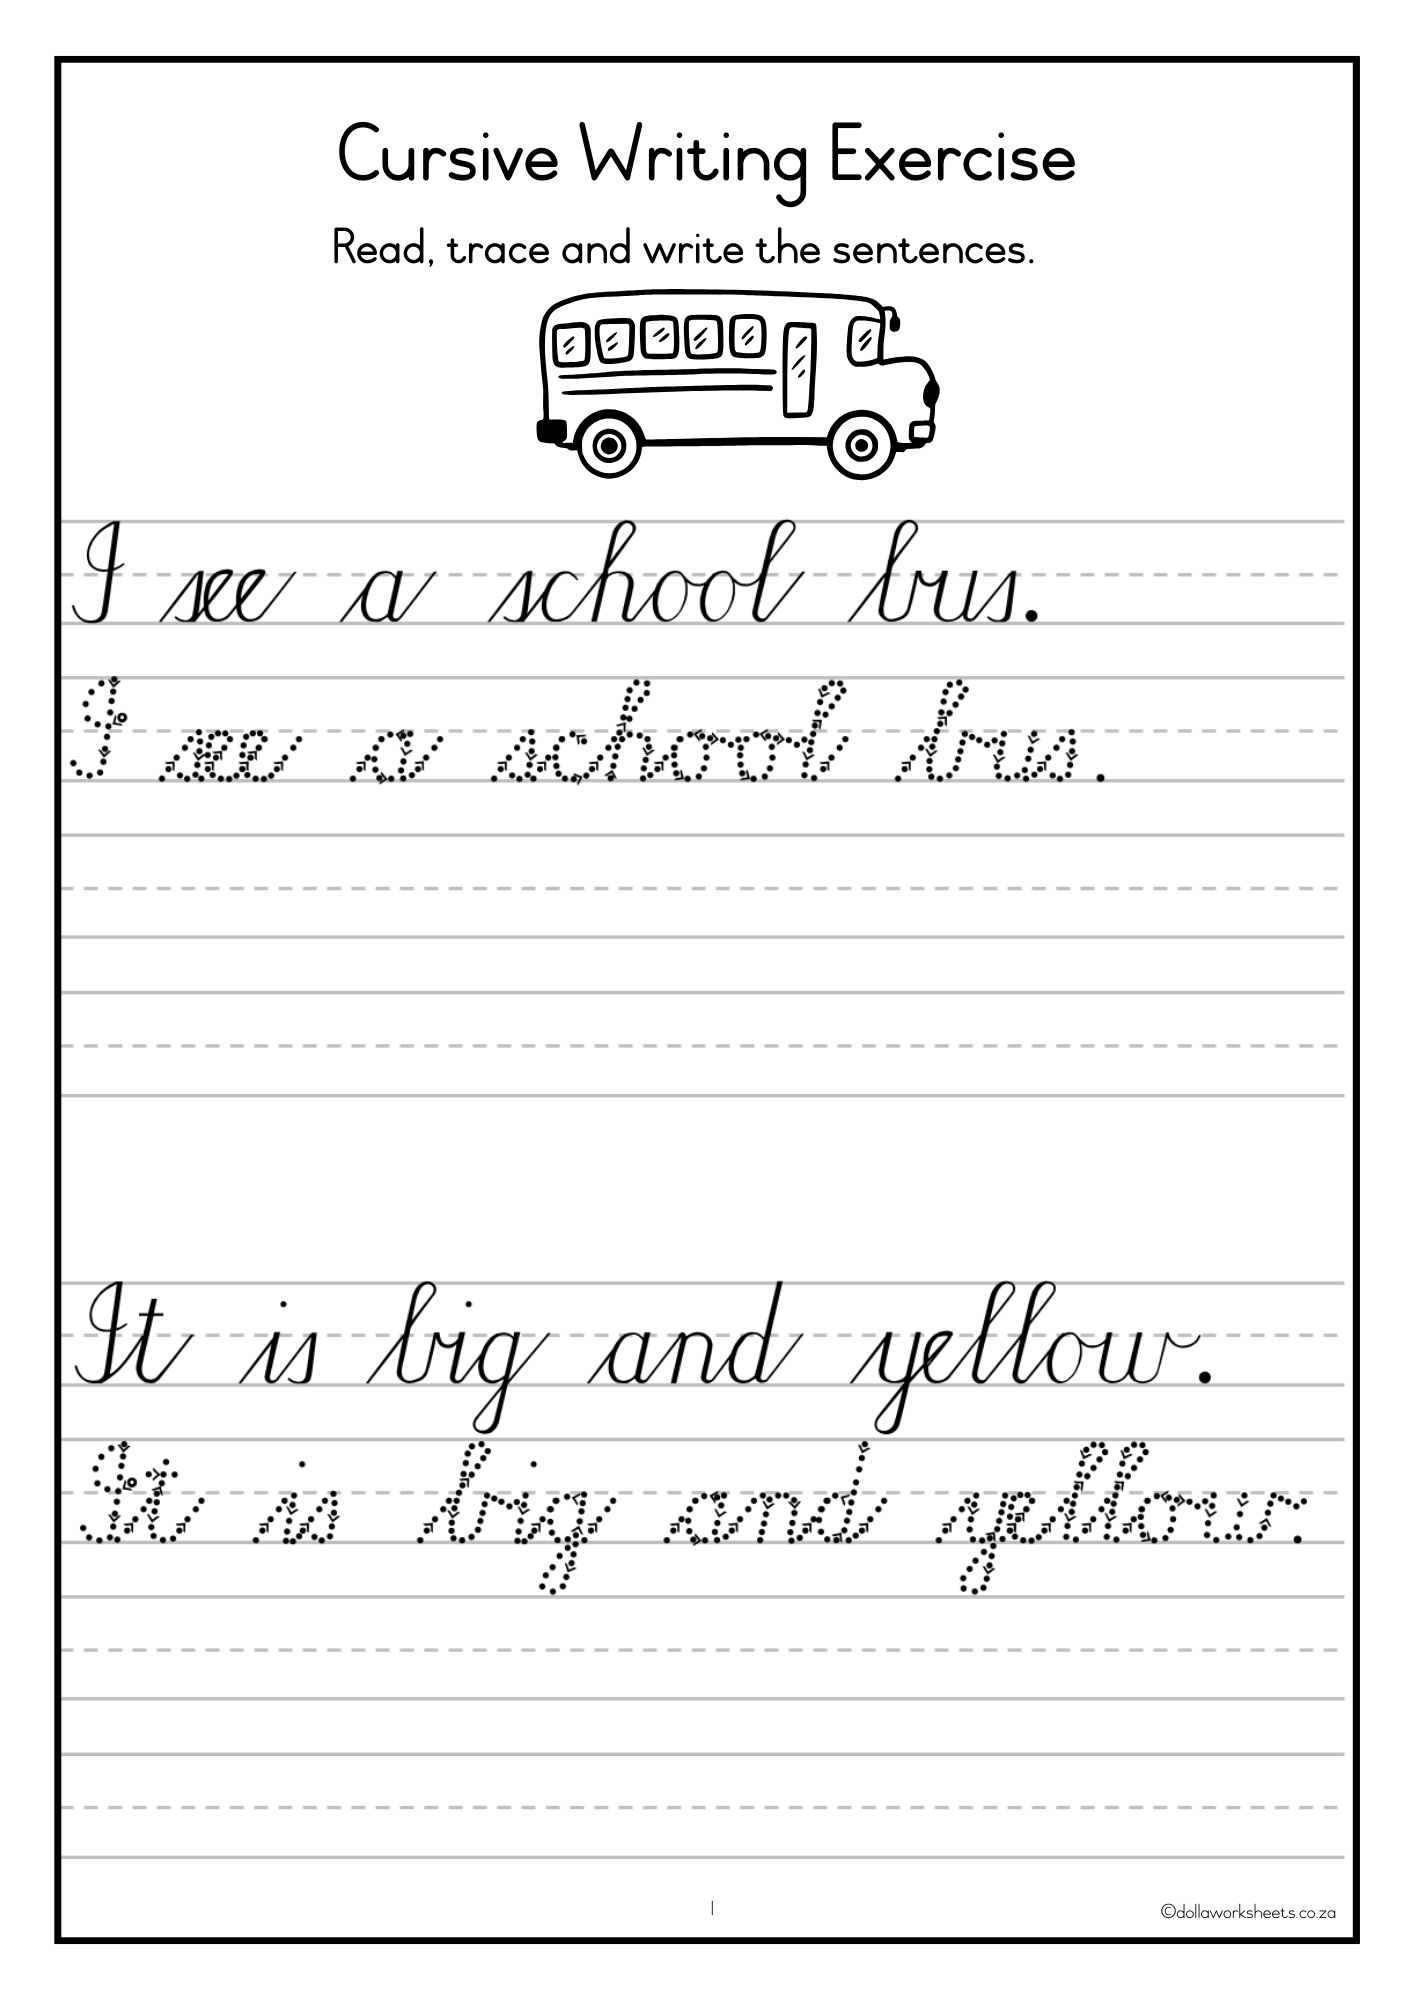 Cursive Writing Exercise
Read, trace and write the sentences.
I see a school bus.
I see a school bus.
It is big and yellow.
It is big and yellow.
1
©dollaworksheets.co.za